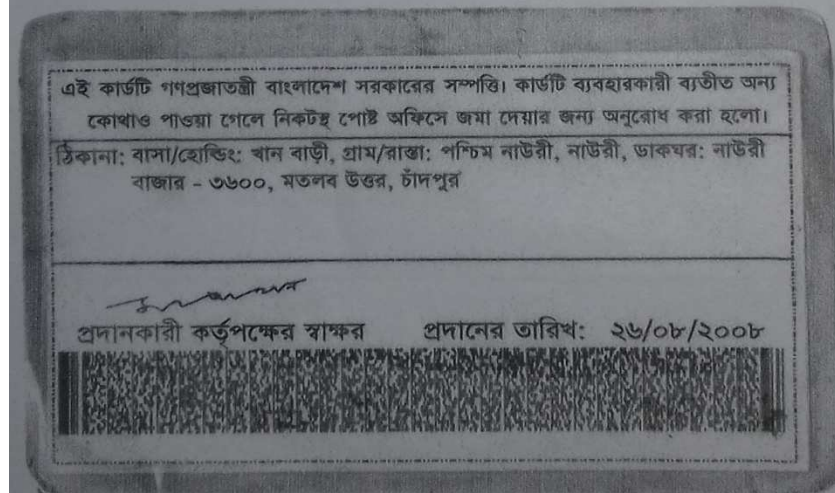 এই কার্ডটি গণপ্রজাতন্ত্রী বাংলাদেশ সরকারের সম্পত্তি। কার্ডটি ব্যবহারকারী ব্যতীত অন্য
কোথাও পাওয়া গেলে নিকটস্থ পোষ্ট অফিসে জমা দেয়ার জন্য অনুরোধ করা হলো।
ঠিকানা: বাসা/হোল্ডিং: খান বাড়ী, গ্রাম/রাস্তা: পশ্চিম নাউরী, নাউরী, ডাকঘর: নাউরী
বাজার - ৩৬০০, মতলব উত্তর, চাঁদপুর
প্রদানকারী কর্তৃপক্ষের স্বাক্ষর প্রদানের তারিখ: ২৬/০৮/২০০৮